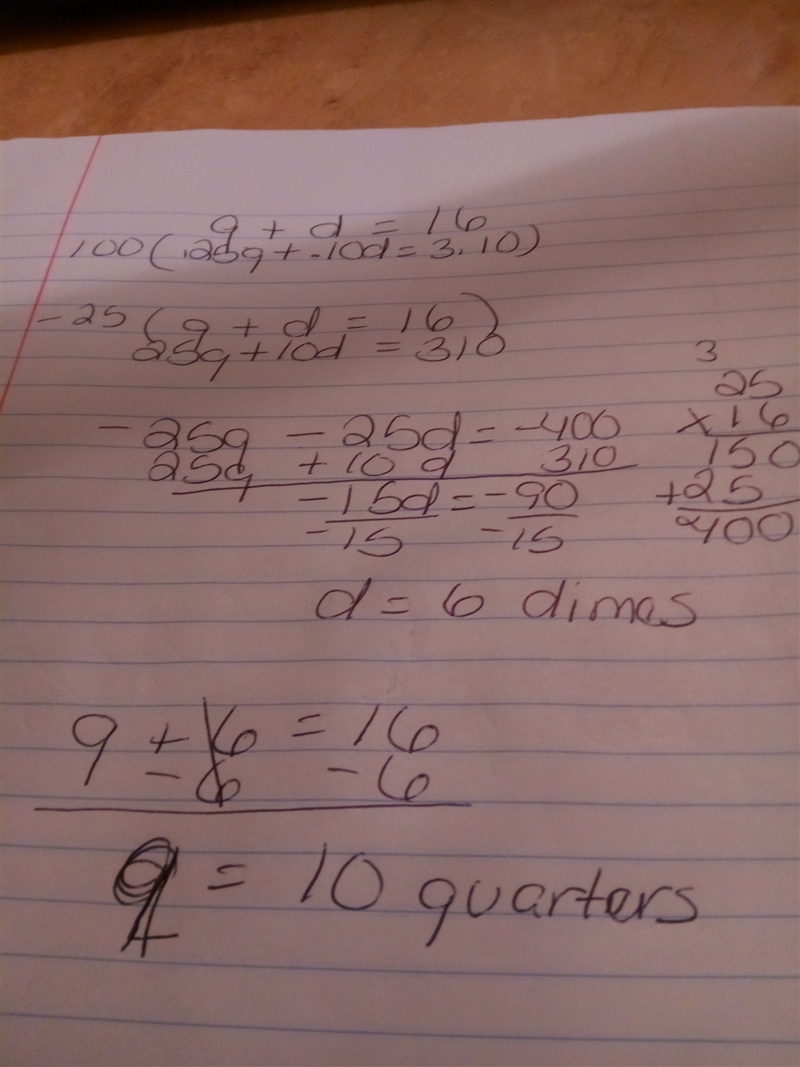 q + d = 16
100(.25q + .10d = 3.10)
-25(q + d = 16)
25q + 10d = 310
-25q - 25d = -400
25q + 10d 310
-15d = -90
-15 -15
d = 6 dimes
3
25
x16
150
+25
400
q + 6 = 16
- 6 - 6
q = 10 quarters